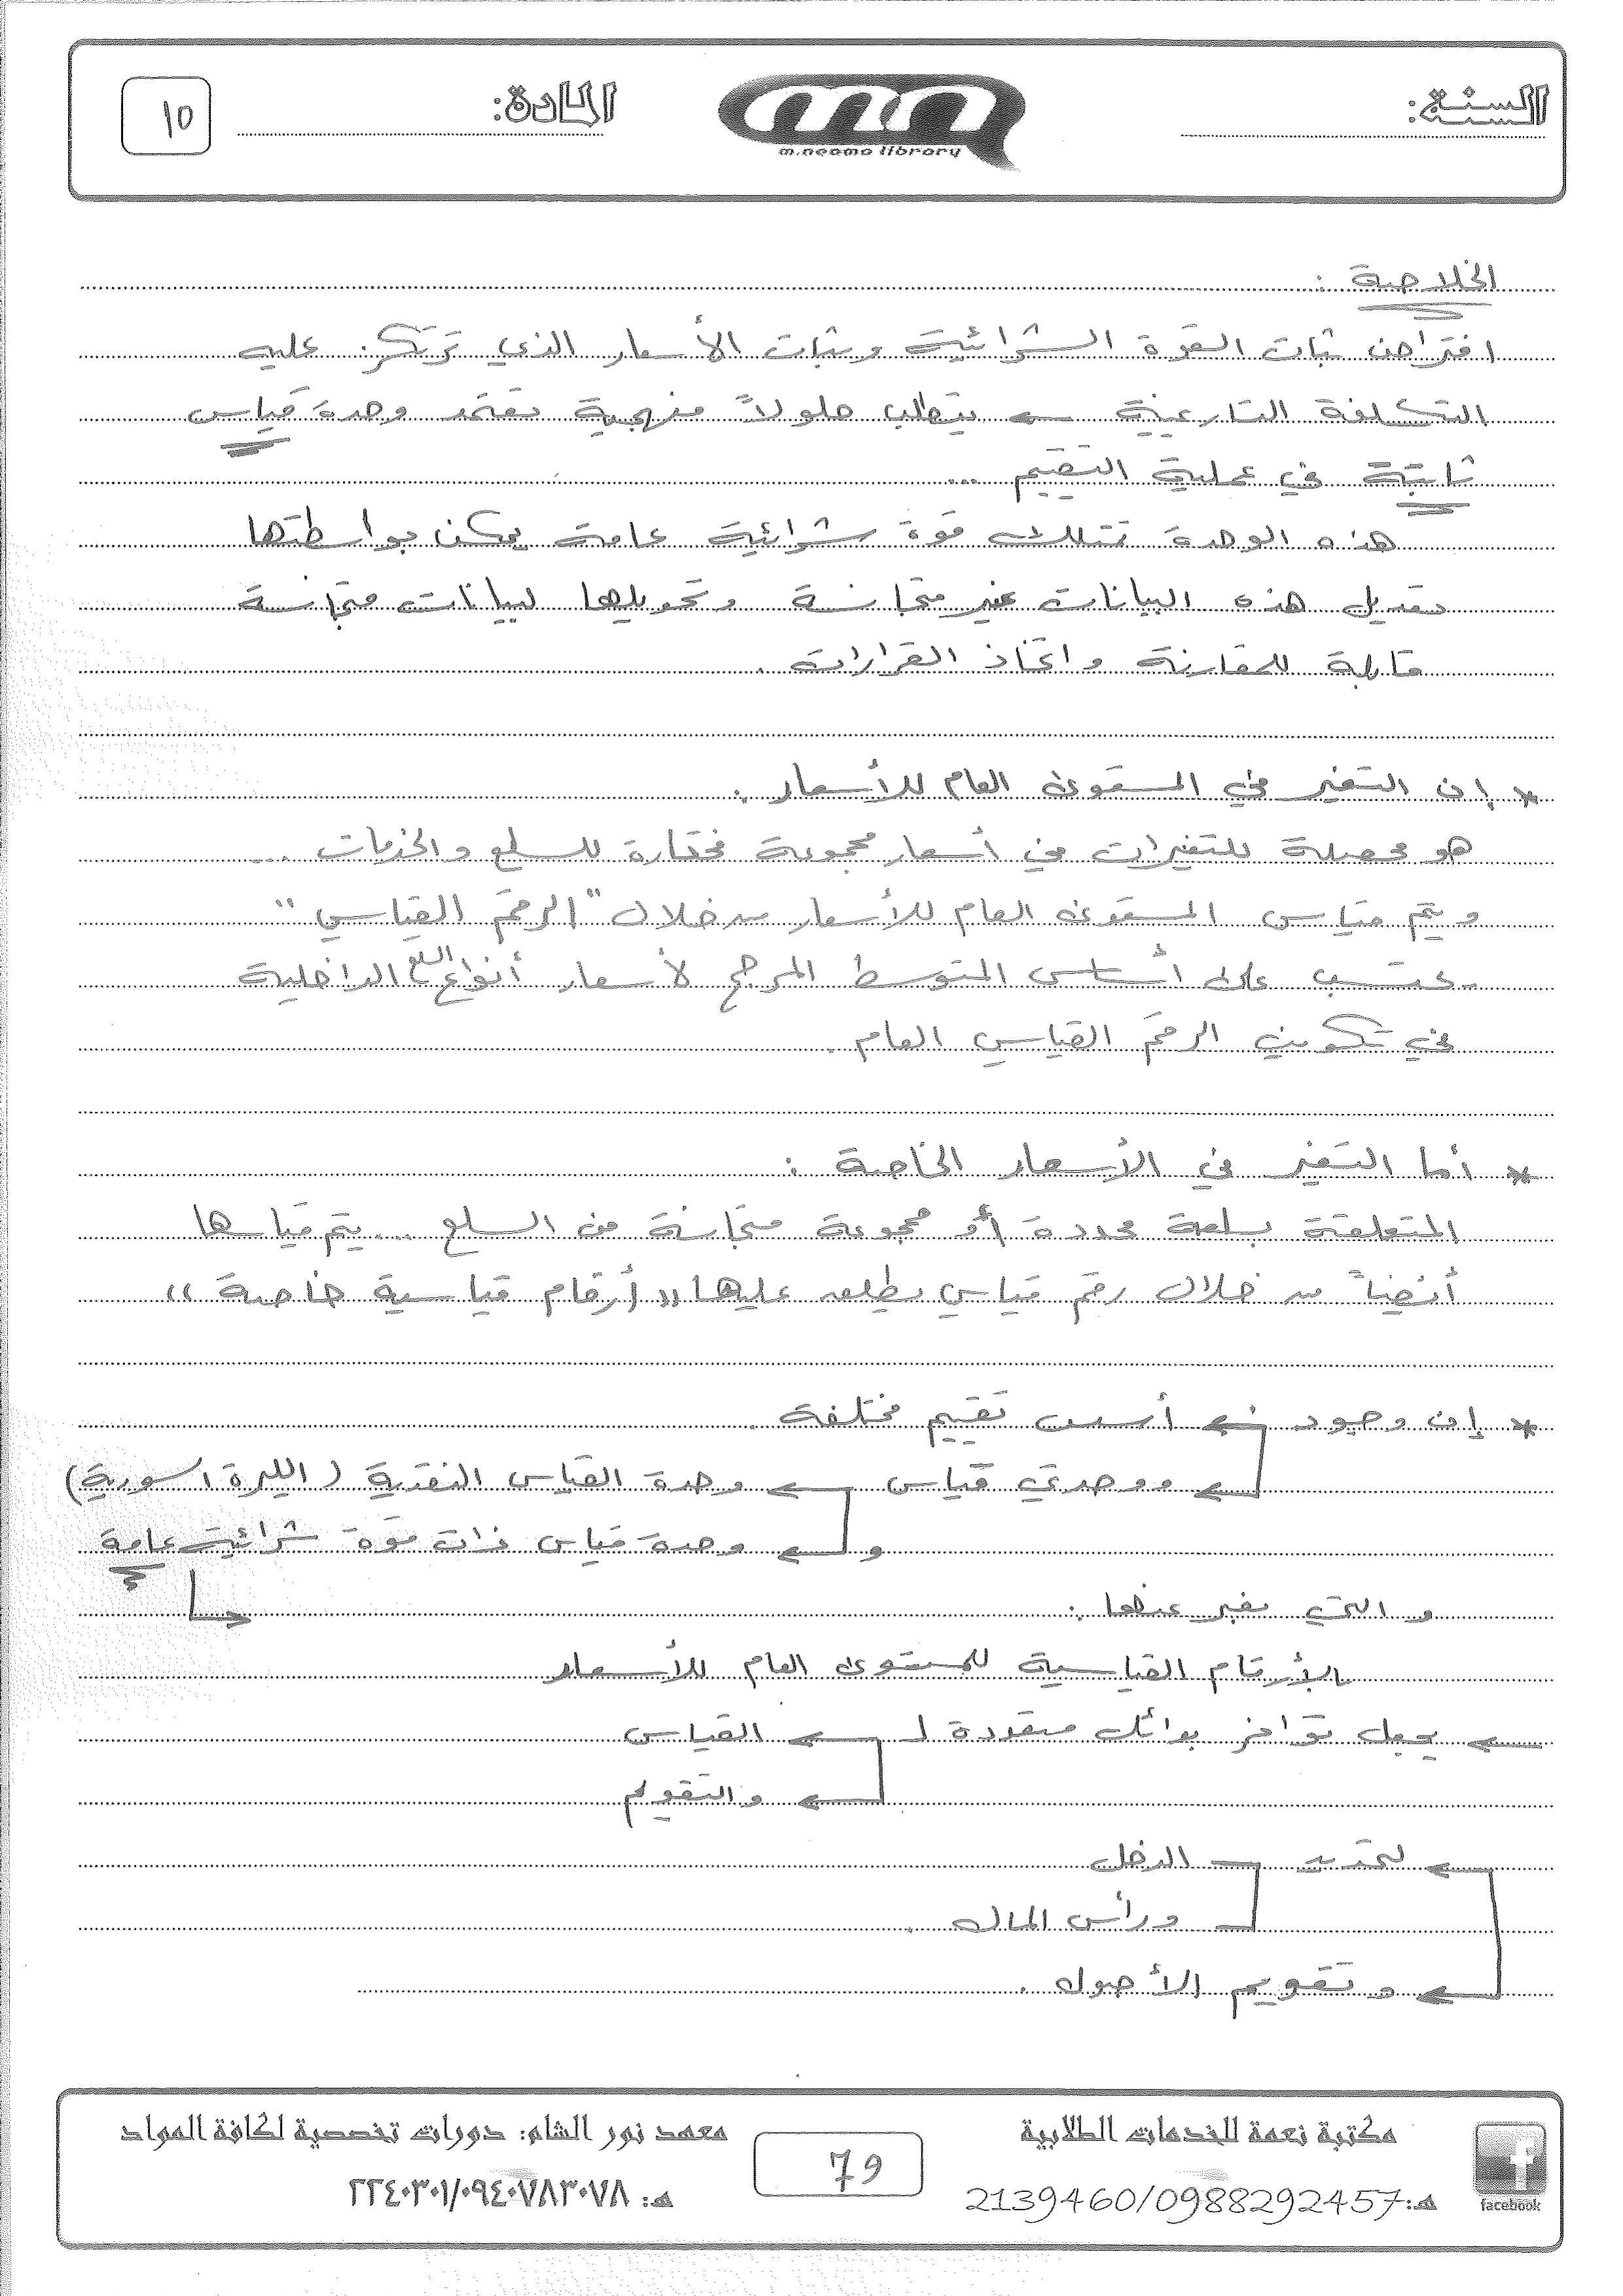 السنة:
المادة:
١٥
m.neama library
الخلاصة :
افتراض ثبات القوة الشرائية وثبات الأسعار الذي ترتكز عليه
التكلفة التاريخية ← يتطلب حلولاً منهجية تعتمد وحدة قياس
ثابتة في عملية التقييم ...
هذه الوحدة تمتلك قوة شرائية عامة يمكن بواسطتها
تعديل هذه البيانات غير متجانسة وتحويلها لبيانات متجانسة
قابلة للمقارنة واتخاذ القرارات .
* إن التغير في المستوى العام للأسعار :
هو محصلة للتغيرات في أسعار مجموعة مختارة للسلع والخدمات ...
ويتم قياس المستوى العام للأسعار من خلال "الرقم القياسي"
يحتسب على أساس المتوسط المرجح لأسعار أنواع السلع الداخلية
في تكوين الرقم القياسي العام .
* أما التغير في الأسعار الخاصة :
المتعلقة بسلعة محددة أو مجموعة متجانسة من السلع ... يتم قياسها
أيضاً من خلال رقم قياسي يطلق عليها "أرقام قياسية خاصة"
* إن وجود ← أسس تقييم مختلفة
← ووحدتي قياس ← وحدة القياس النقدية (الليرة السورية)
و ← وحدة قياس ذات قوة شرائية عامة
والتي نعبر عنها :
بالأرقام القياسية للمستوى العام للأسعار
← يجعل توافر بدائل متعددة لـ ← القياس
← والتقويم
← لتحديد الدخل
ورأس المال .
← وتقويم الأصول .
مكتبة نعمة للخدمات الطلابية
هـ: 2139460/0988292457
facebook
79
معهد نور الشام: دورات تخصصية لكافة المواد
هـ: ٢٢٤٠٣٠١/٠٩٤٠٧٨٣٠٧٨